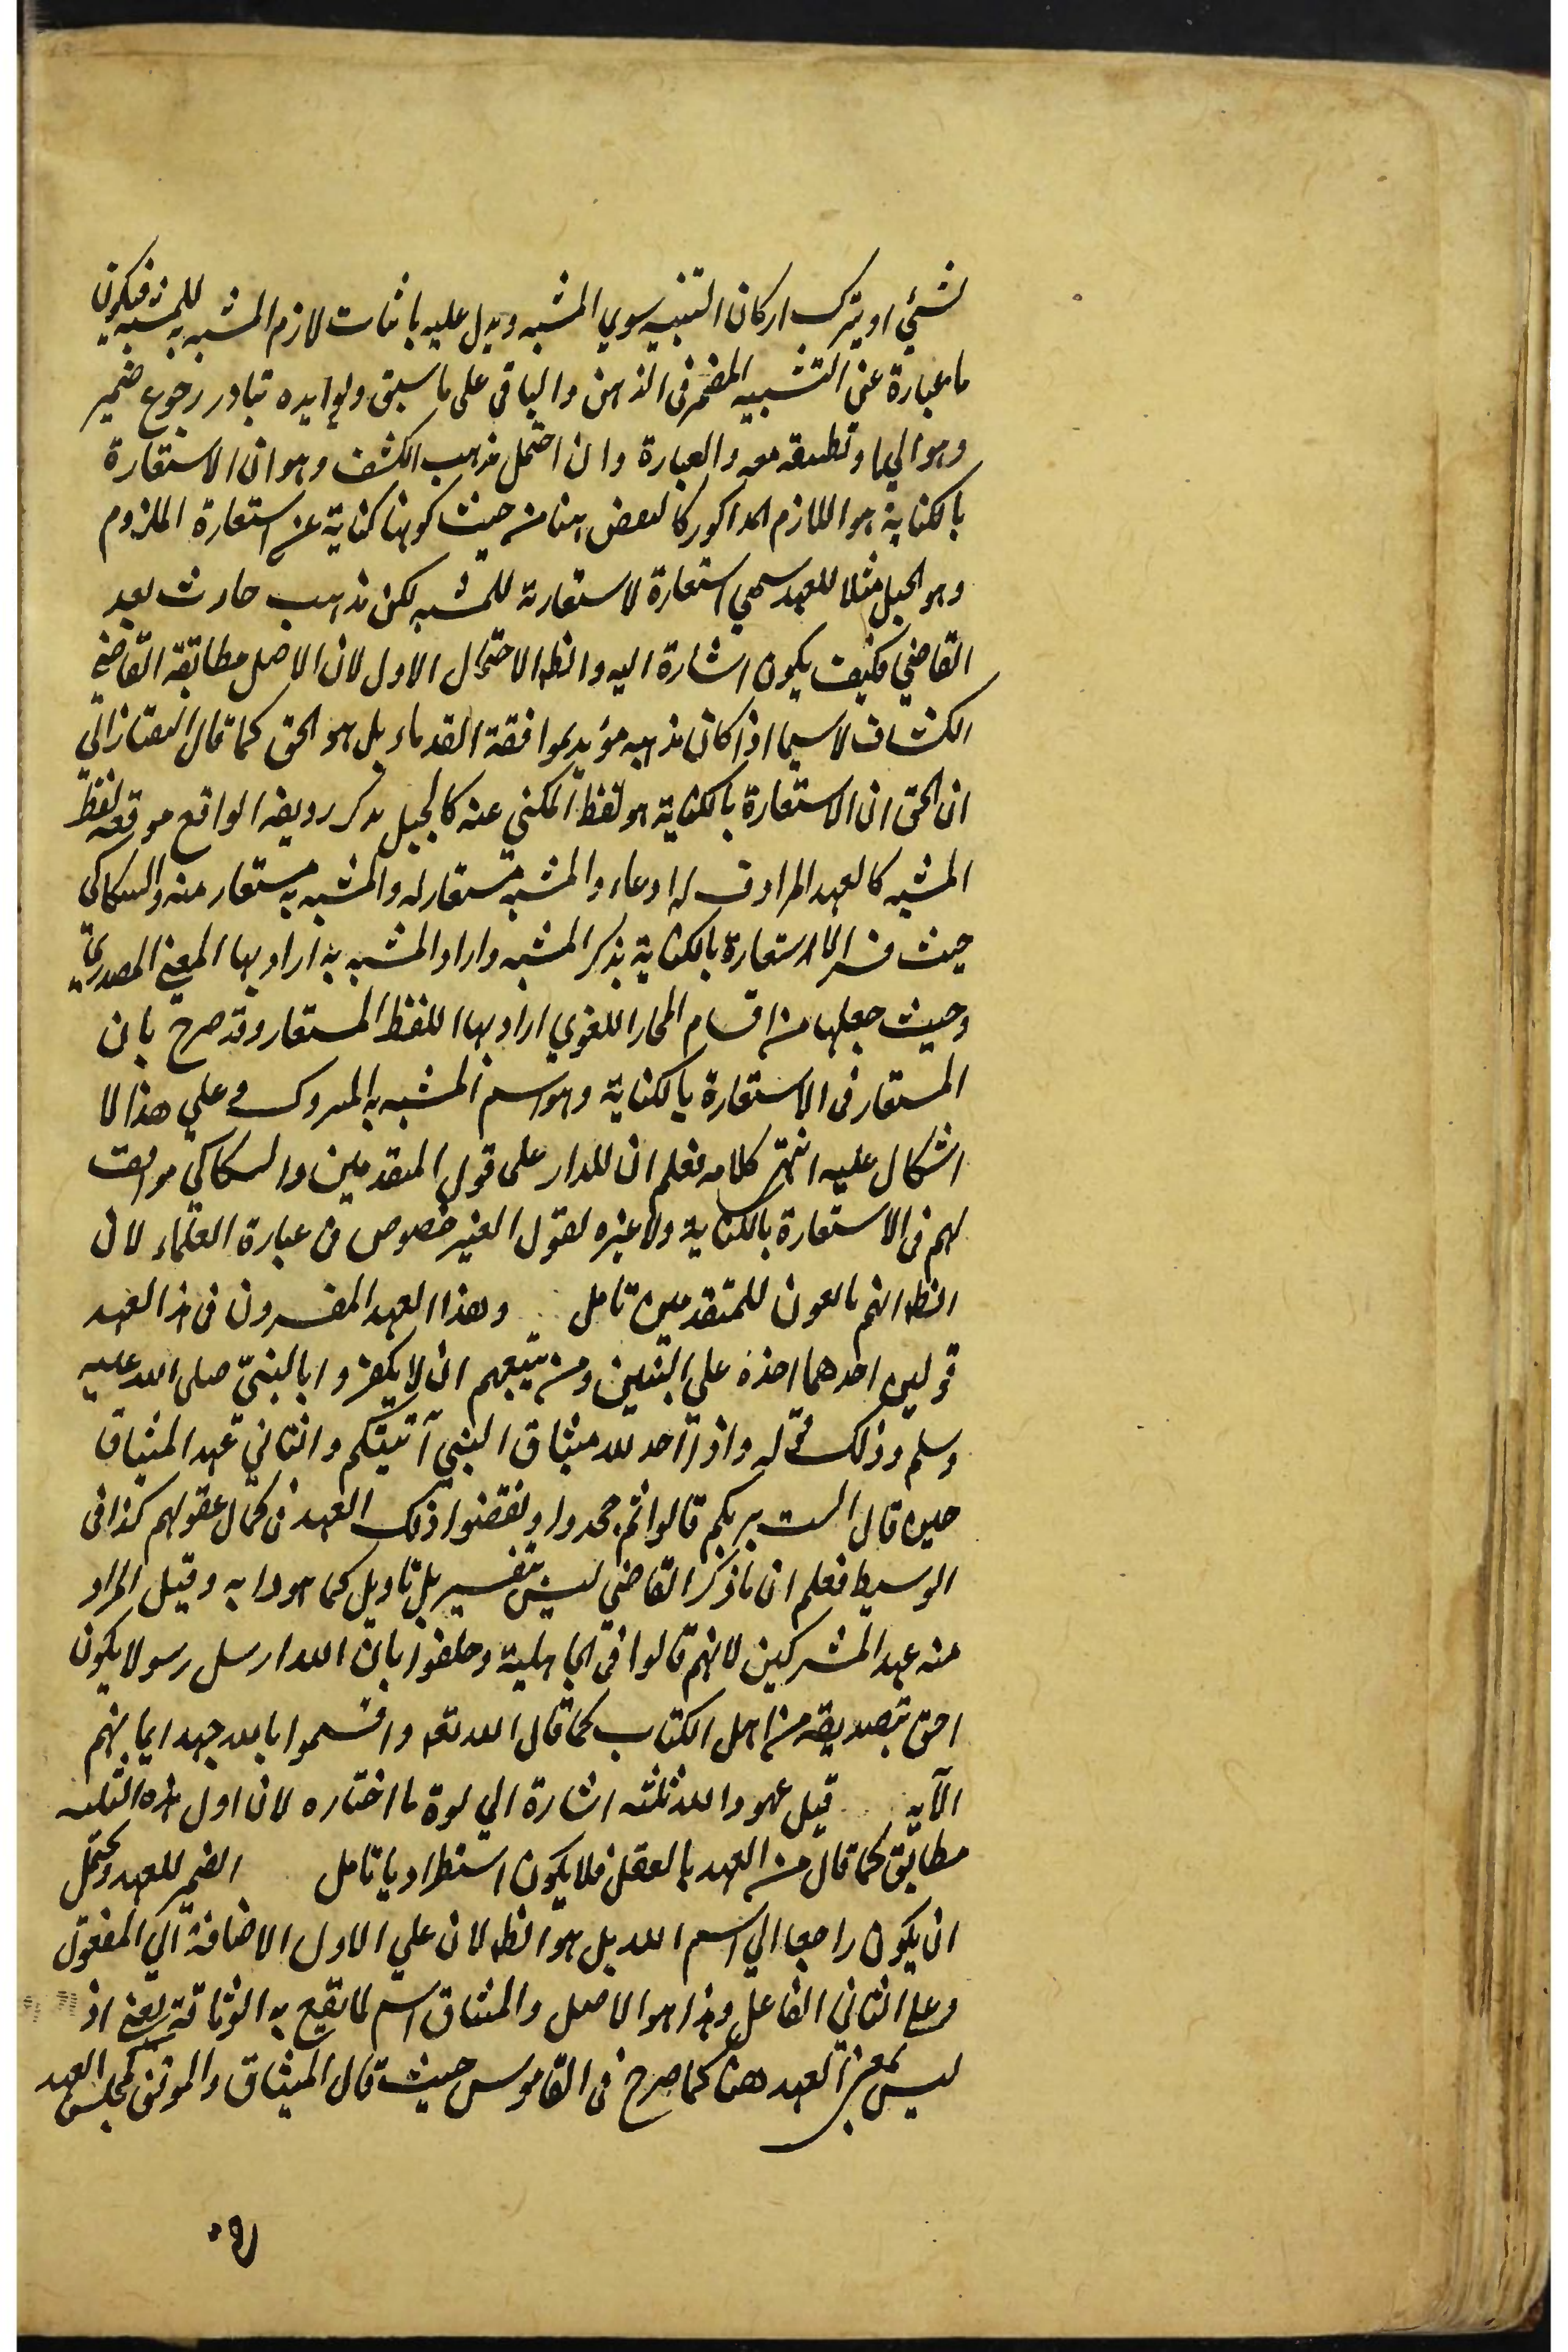 لشئ او يترك اركان التشبيه سوي المشبه ويدل عليه باثبات لازم المشبه به للمشبه فيكون
ما عبارة عن التشبيه المضمر في الذهن والباقي على ما سبق ولو ايده تبادر رجوع ضمير
وهو اليها وتطبيقه معه والعبارة وان احتمل مذهب الكشف وهو ان الاستعارة
بالكناية هو اللازم المذكور كالنقض هنا من حيث كونها كناية عن استعارة الملزوم
وهو الحبل مثلا للعهد سمي استعارة لاستعارته للمشبه لكن مذهب حادث بعد
القاضي فكيف يكون اشارة اليه والظ الاحتمال الاول لان الاصل مطابقة القاضي
الكشاف لاسيما اذا كان مذهبه مؤيد بموافقة القدماء بل هو الحق كما قال التفتازاني
ان الحق ان الاستعارة بالكناية هو لفظ المكني عنه كالحبل بذكر رديفه الواقع موقعه لفظ
المشبه كالعهد المرادف له ادعاء والمشبه مستعار له والمشبه به مستعار منه والسكاكي
حيث فسر الاستعارة بالكناية بذكر المشبه واراد المشبه به اراد بها المعنى المصدري
وحيث جعلها من اقسام المجاز اللغوي اراد بها اللفظ المستعار وقد صرح بان
المستعار في الاستعارة بالكناية وهو اسم المشبه به المتروك وعلي هذا لا
اشكال عليه انتهى كلامه فعلم ان المدار على قول المتقدمين والسكاكي موافق
لهم في الاستعارة بالكناية ولا عبرة لقول الغير خصوص في عبارة العلماء لان
الظ انهم تابعون للمتقدمين تامل وهذا العهد المفسرون في هذا العهد
قولين احدهما اخذه علي النبيين ومن يتبعهم ان لا يكفروا بالنبي صلى الله عليه
وسلم وذلك قوله واذ اخذ الله ميثاق النبي آتيتكم والثاني عهد الميثاق
حين قال الست بربكم قالوا ثم جحدوا ونقضوا ذلك العهد في كمال عقولهم كذا في
الوسيط فعلم ان ما ذكر القاضي ليس بتفسير بل تاويل كما هو دابه وقيل المراد
منه عهد المشركين لانهم قالوا في الجاهلية وحلفوا بان الله ارسل رسولا يكون
احق بتصديقه من اهل الكتاب كما قال الله تع واقسموا بالله جهد ايمانهم
الآية قيل عهود الله ثلثة اشارة الي قوة ما اختاره لان اول هذه الثلثة
مطابق كما قال من العهد بالعقل فلا يكون استطراديا تامل الضمير للعهد ويحتمل
ان يكون راجعا الي اسم الله بل هو الظ لان علي الاول الاضافة الي المفعول
وعلي الثاني الفاعل وهذا هو الاصل والميثاق اسم لما يقع به الوثاقة يعني اذ
ليس بمعنى العهد هنا كما صرح في القاموس حيث قال الميثاق والموثق كمجلس العهد